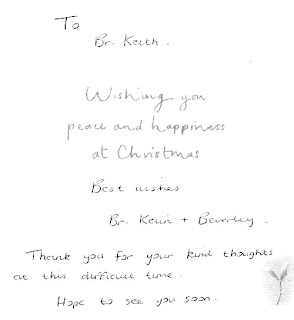 To
Br. Keith.
Wishing you
peace and happiness
at Christmas
Best wishes
Br. Kevin + Beverley.
Thank you for your kind thoughts
at this difficult time.
Hope to see you soon.